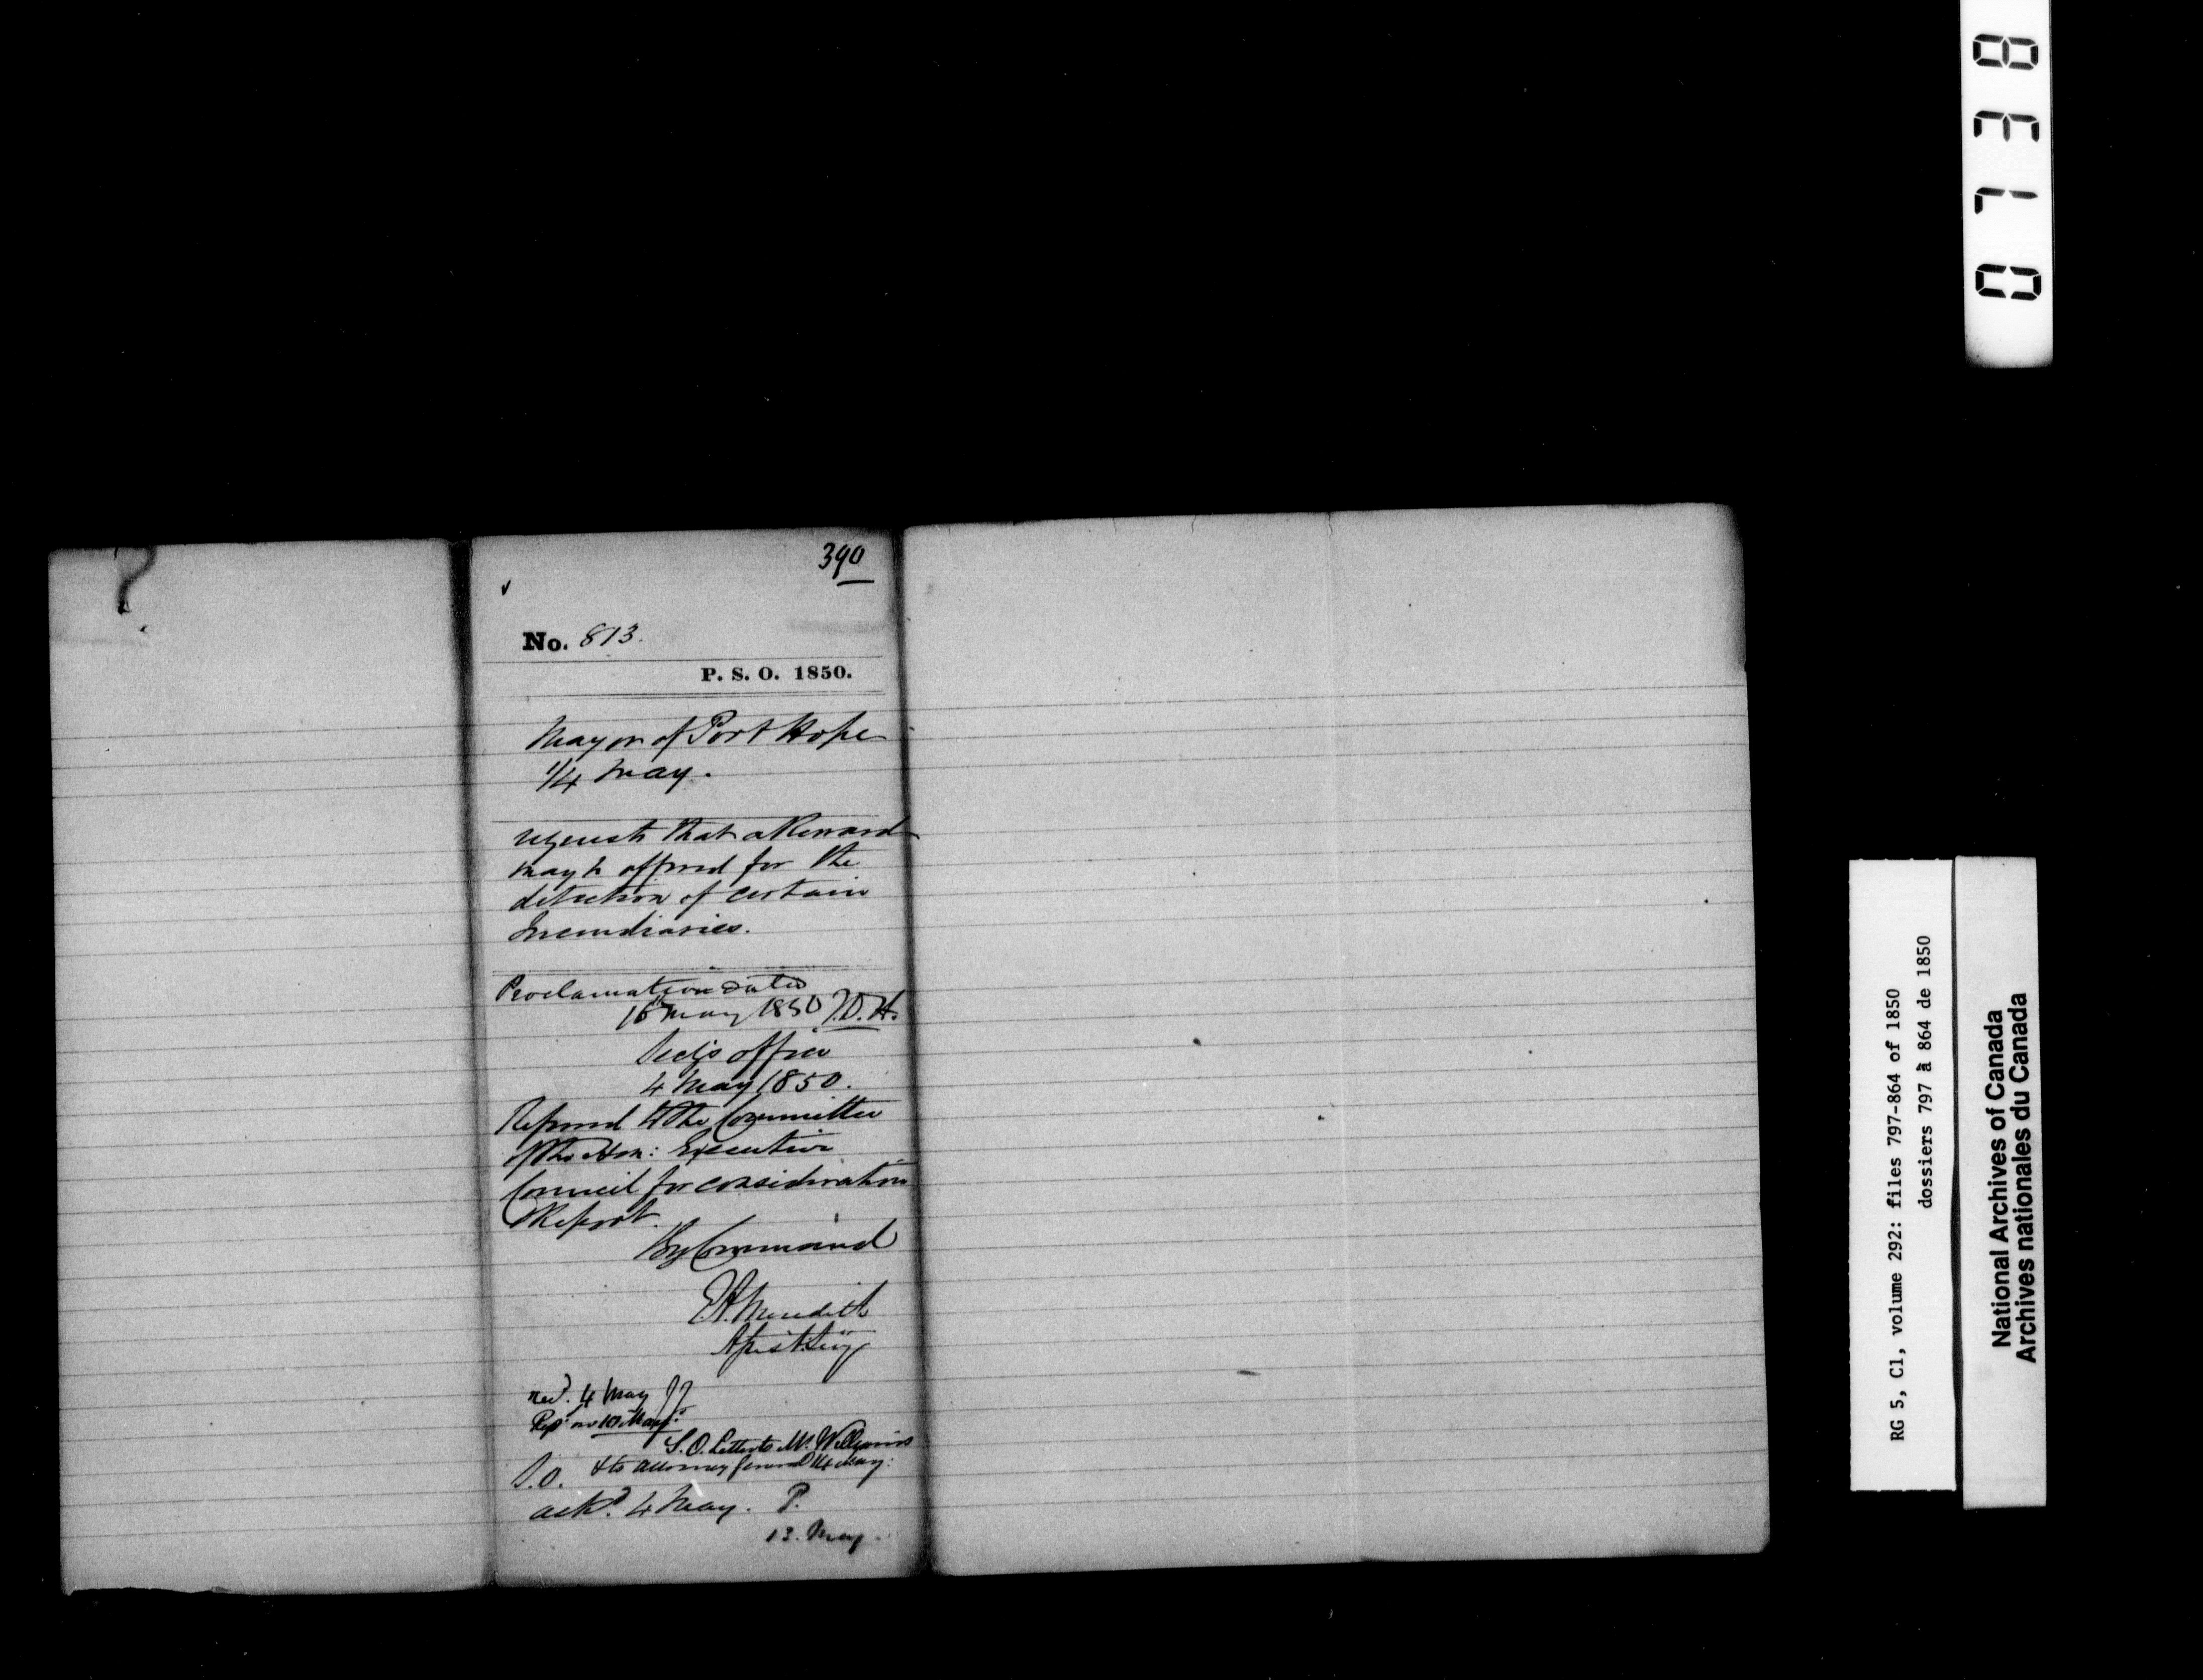 390
No. 813.
P. S. O. 1850.
Mayor of Port Hope
1/4 May.
requests that a Reward
may be offered for the
detection of certain
Incendiaries.
Proclamation dated
16th May 1850 T.D.H.
Secy's office
4 May 1850.
Referred to the Committee
of the Hon: Executive
Council for consideration
& Report.
By Command
E.A. Meredith
Assist. Secy
Recd. 4 May JJ
Repd. on 10 May.
S.O. Letter to Mr. Williams
& to Attorney General 14 May:
S.O.
ackd. 4 May. P.
13. May.
0738
RG 5, C1, volume 292: files 797-864 of 1850
dossiers 797 à 864 de 1850
National Archives of Canada
Archives nationales du Canada